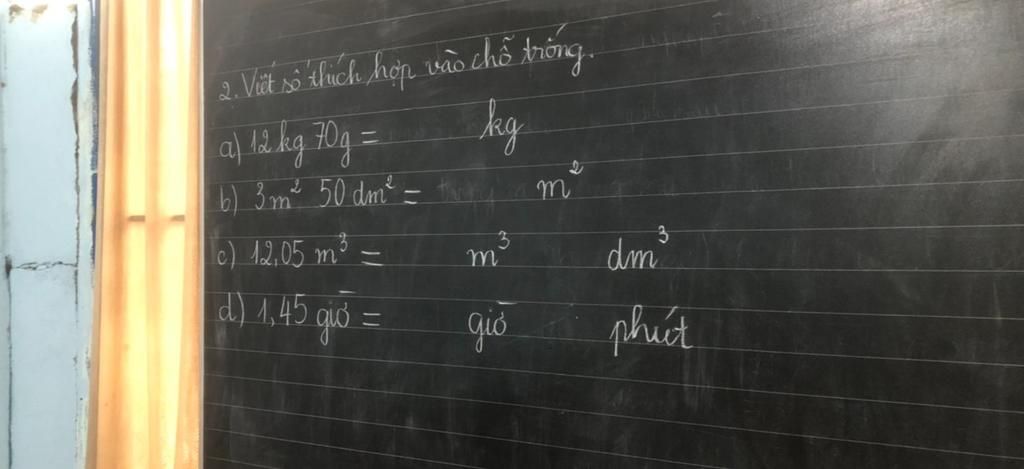 2. Viết số thích hợp vào chỗ trống.
a) 12 kg 70g = kg
b) 3m² 50 dm² = m²
c) 12,05 m³ = m³ dm³
d) 1,45 giờ = giờ phút